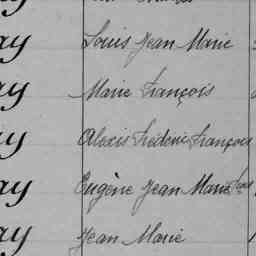 ay Louis Jean Marie
ay Marie François
ay Alexis Frédéric François
ay Eugène Jean Marie
ay Jean Marie